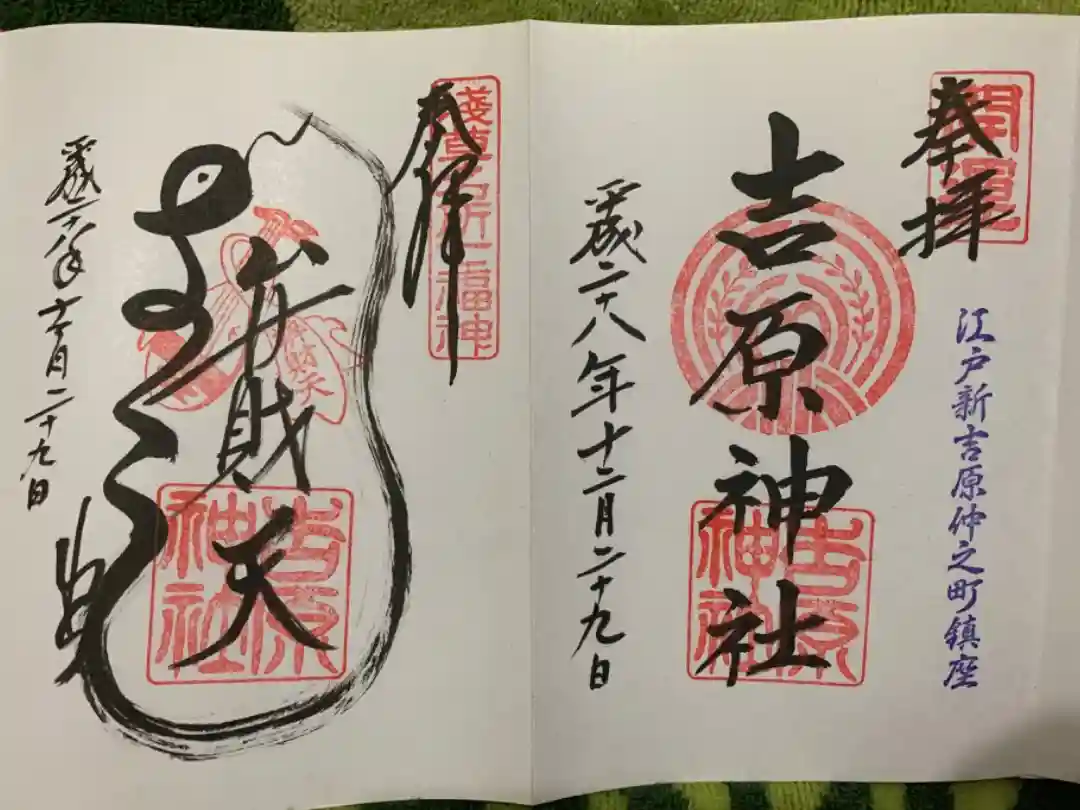 開運
奉拝
江戸新吉原仲之町鎮座
吉原神社
吉原神社
平成二十八年十二月二十九日
淺草名所七福神
奉拝
弁財天
吉原神社
平成二十八年十二月二十九日